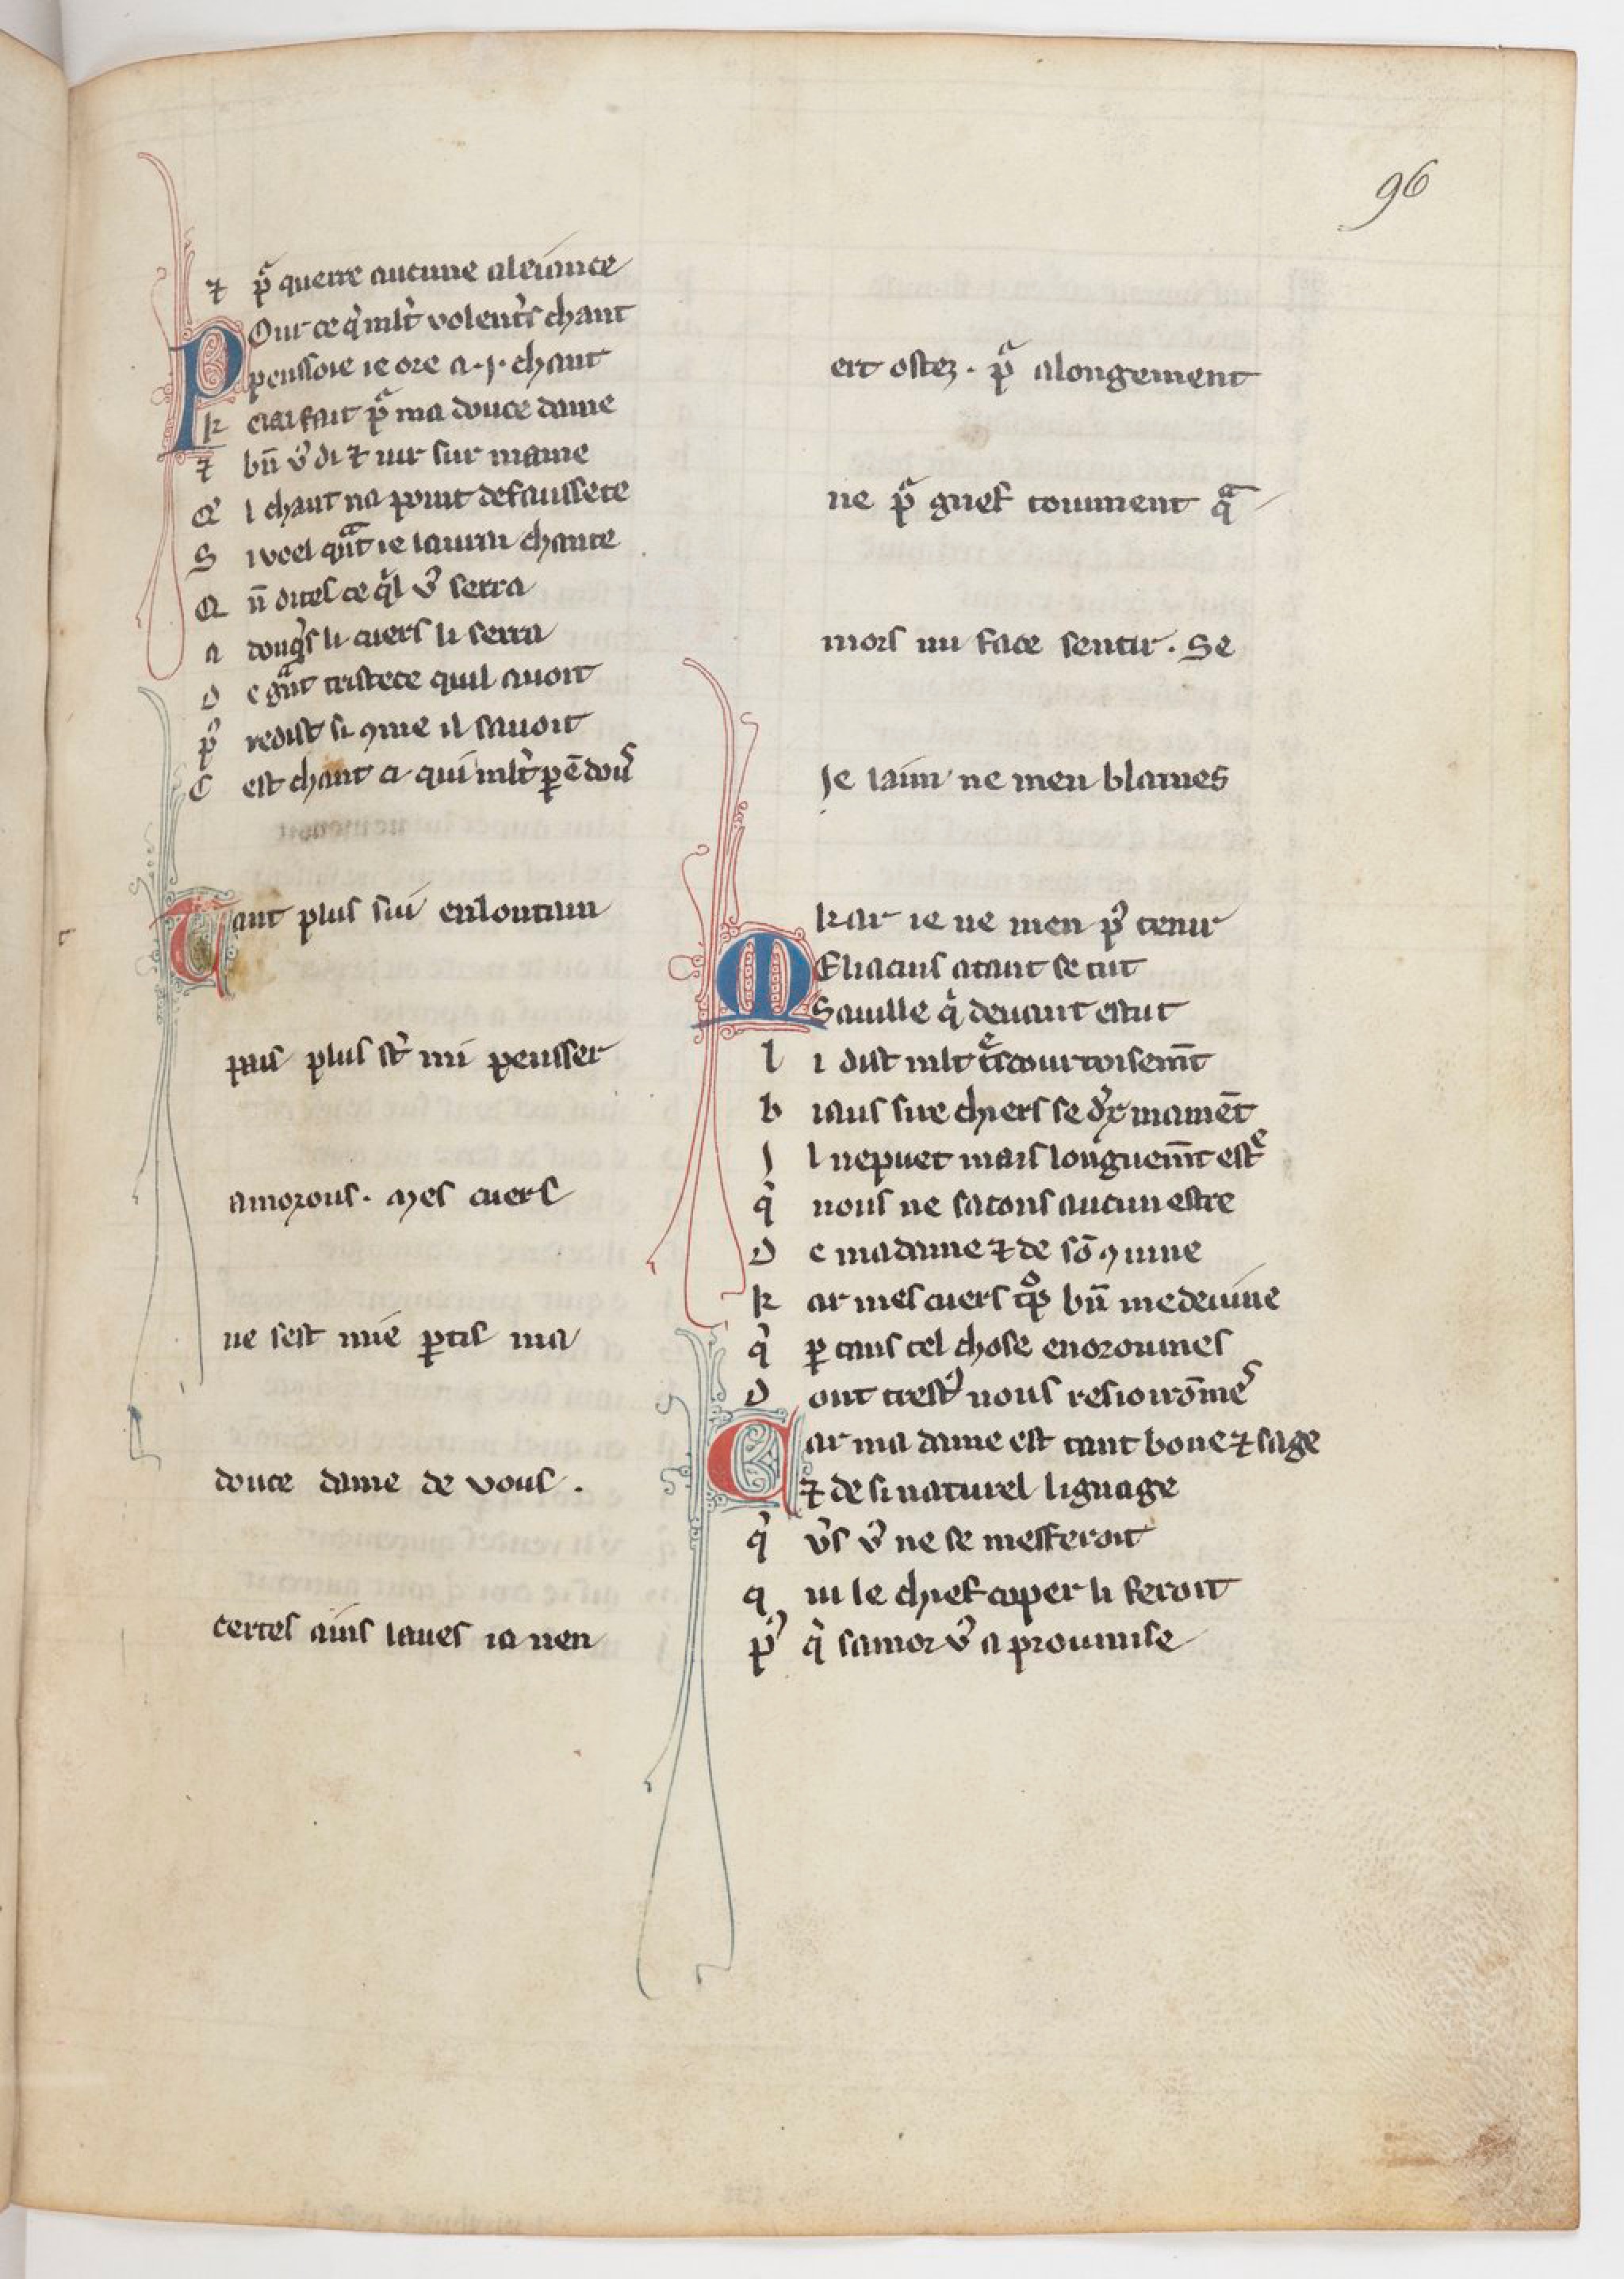 96
⁊ pͣ querre aucune aleiance
POur ce qͥ mlt̾ volent̾s chant
penssoie ie ore a .j. chant
k eiai fait pͣ ma douce dame
⁊ bn̄ v9 di ⁊ iur sur mame
Q̾ l chant na point de faussete
S i voel qͣnt ie laurai chante
Q n̄ dites ce qͥl v9 serra
A donq̾s li cuers li serra
D e gͣnt tristece quil auoit
p9 redist si ꝯme il sauoit
C est chant a qui mlt̾ ꝑ ē dou9
Tant plus sui enlontain
pais plus st̾ mi pensser
amorous . Mes cuers
ne sest mie ꝑtis ma
douce dame de vous .
certes ains iaues ia nen
ert ostez . pͣ alongement
ne pͣ grief tourment qͣ
mors mi face sentir . Se
Je laim ne men blames
kar ie ne men p9 tenir
MEliacins atant se tut
Sauille qͥ deuant estut
l i dist mlt t̾scourtoisem̄t
b iaus sire chiers se dx̾ mament
J l ne puet mais longuem̄t estͤ
qͥ nous ne sacons aucun estre
D e madame ⁊ de sō ꝯuine
k ar mes cuers tͦp bn̄ me deuine
qͥ ꝑ tans tel chose en oroumes
D ont trest9 nous resioirōmes
Car ma dame est tant bone ⁊ sage
⁊ de si naturel lignage
qͥ v̾s v9 ne se mesferoit
q ui le chief coper li feroit
p9 qͥ samor v9 a proumise